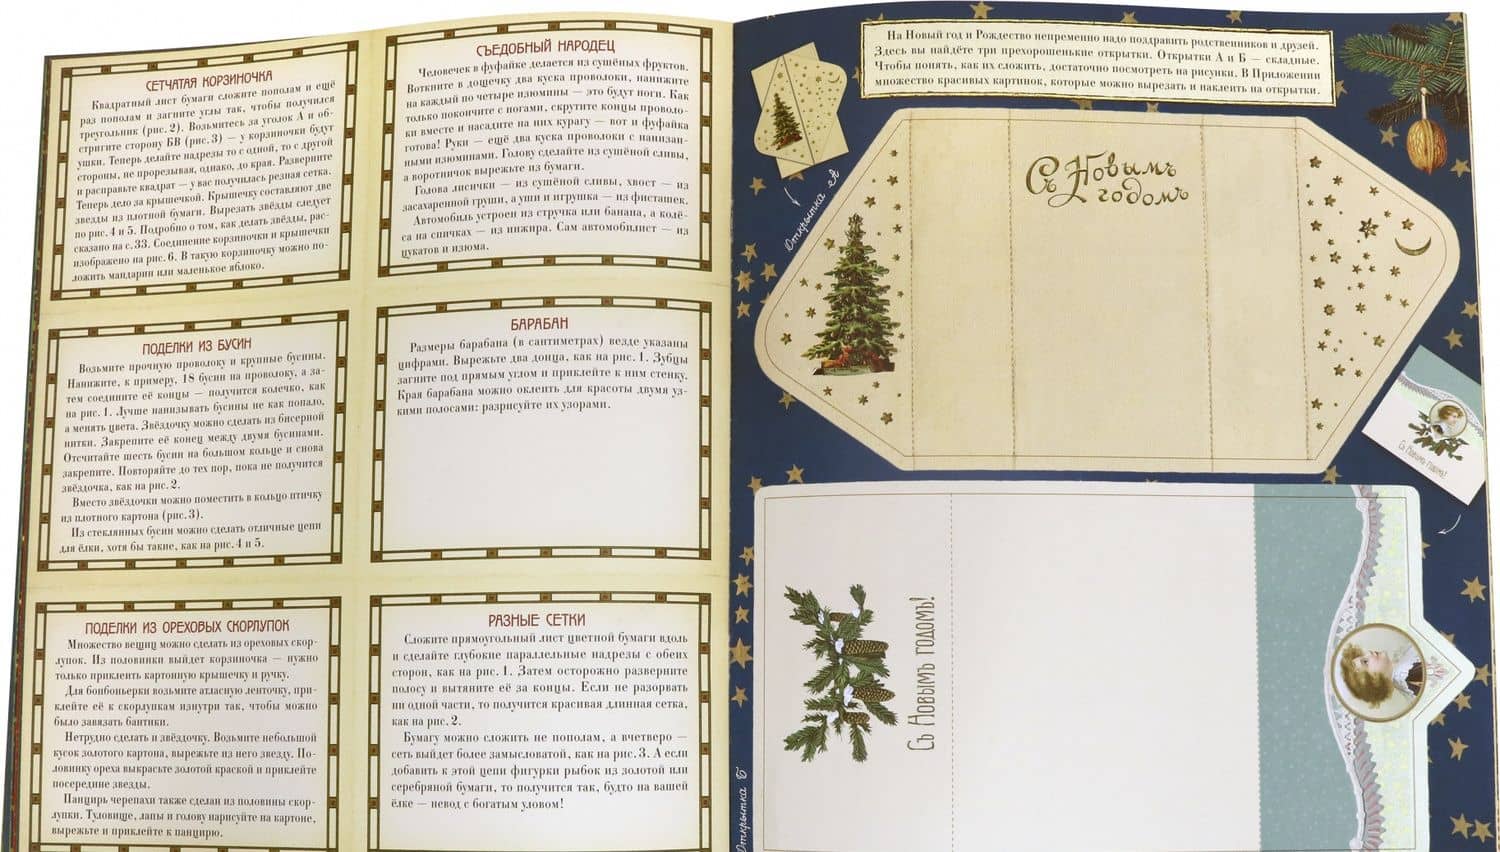 СЕТЧАТАЯ КОРЗИНОЧКА
Квадратный лист бумаги сложите пополам и ещё
раз пополам и загните углы так, чтобы получился
треугольник (рис. 2). Возьмитесь за уголок А и об-
стригите сторону БВ (рис. 3) — у корзиночки будут
ушки. Теперь делайте надрезы то с одной, то с другой
стороны, не прорезывая, однако, до края. Разверните
и расправьте квадрат — у вас получилась резная сетка.
Теперь дело за крышечкой. Крышечку составляют две
звезды из плотной бумаги. Вырезать звёзды следует
по рис. 4 и 5. Подробно о том, как делать звёзды, рас-
сказано на с. 33. Соединение корзиночки и крышечки
изображено на рис. 6. В такую корзиночку можно по-
ложить мандарин или маленькое яблоко.
СЪЕДОБНЫЙ НАРОДЕЦ
Человечек в фуфайке делается из сушёных фруктов.
Воткните в дощечку два куска проволоки, нанижите
на каждый по четыре изюмины — это будут ноги. Как
только покончите с ногами, скрутите концы проволо-
ки вместе и насадите на них курагу — вот и фуфайка
готова! Руки — ещё два куска проволоки с нанизан-
ными изюминами. Голову сделайте из сушёной сливы,
а воротничок вырежьте из бумаги.
Голова лисички — из сушёной сливы, хвост — из
засахаренной груши, а уши и игрушка — из фисташек.
Автомобиль устроен из стручка или банана, а колё-
са на спичках — из инжира. Сам автомобилист — из
цукатов и изюма.
ПОДЕЛКИ ИЗ БУСИН
Возьмите прочную проволоку и крупные бусины.
Нанижите, к примеру, 18 бусин на проволоку, а за-
тем соедините её концы — получится колечко, как
на рис. 1. Лучше нанизывать бусины не как попало,
а менять цвета. Звёздочку можно сделать из бисерной
нитки. Закрепите её конец между двумя бусинами.
Отсчитайте шесть бусин на большом кольце и снова
закрепите. Повторяйте до тех пор, пока не получится
звёздочка, как на рис. 2.
Вместо звёздочки можно поместить в кольцо птичку
из плотного картона (рис. 3).
Из стеклянных бусин можно сделать отличные цепи
для ёлки, хотя бы такие, как на рис. 4 и 5.
БАРАБАН
Размеры барабана (в сантиметрах) везде указаны
цифрами. Вырежьте два донца, как на рис. 1. Зубцы
загните под прямым углом и приклейте к ним стенку.
Края барабана можно оклеить для красоты двумя уз-
кими полосами: разрисуйте их узорами.
ПОДЕЛКИ ИЗ ОРЕХОВЫХ СКОРЛУПОК
Множество вещиц можно сделать из ореховых скор-
лупок. Из половинки выйдет корзиночка — нужно
только приклеить картонную крышечку и ручку.
Для бонбоньерки возьмите атласную ленточку, при-
клейте её к скорлупкам изнутри так, чтобы можно
было завязать бантики.
Нетрудно сделать и звёздочку. Возьмите небольшой
кусок золотого картона, вырежьте из него звезду. По-
ловинку ореха выкрасьте золотой краской и приклейте
посередине звезды.
Панцирь черепахи также сделан из половины скор-
лупки. Туловище, лапы и голову нарисуйте на картоне,
вырежьте и приклейте к панцирю.
РАЗНЫЕ СЕТКИ
Сложите прямоугольный лист цветной бумаги вдоль
и сделайте глубокие параллельные надрезы с обеих
сторон, как на рис. 1. Затем осторожно разверните
полосу и вытяните её за концы. Если не разорвать
ни одной части, то получится красивая длинная сетка,
как на рис. 2.
Бумагу можно сложить не пополам, а вчетверо —
сеть выйдет более замысловатой, как на рис. 3. А если
добавить к этой цепи фигурки рыбок из золотой или
серебряной бумаги, то получится так, будто на вашей
ёлке — невод с богатым уловом!
На Новый год и Рождество непременно надо поздравить родственников и друзей.
Здесь вы найдёте три прехорошенькие открытки. Открытки А и Б — складные.
Чтобы понять, как их сложить, достаточно посмотреть на рисунки. В Приложении
множество красивых картинок, которые можно вырезать и наклеить на открытки.
Открытка А
Съ Новымъ
годомъ
Съ Новымъ годомъ!
Съ Новымъ годомъ!
Открытка Б